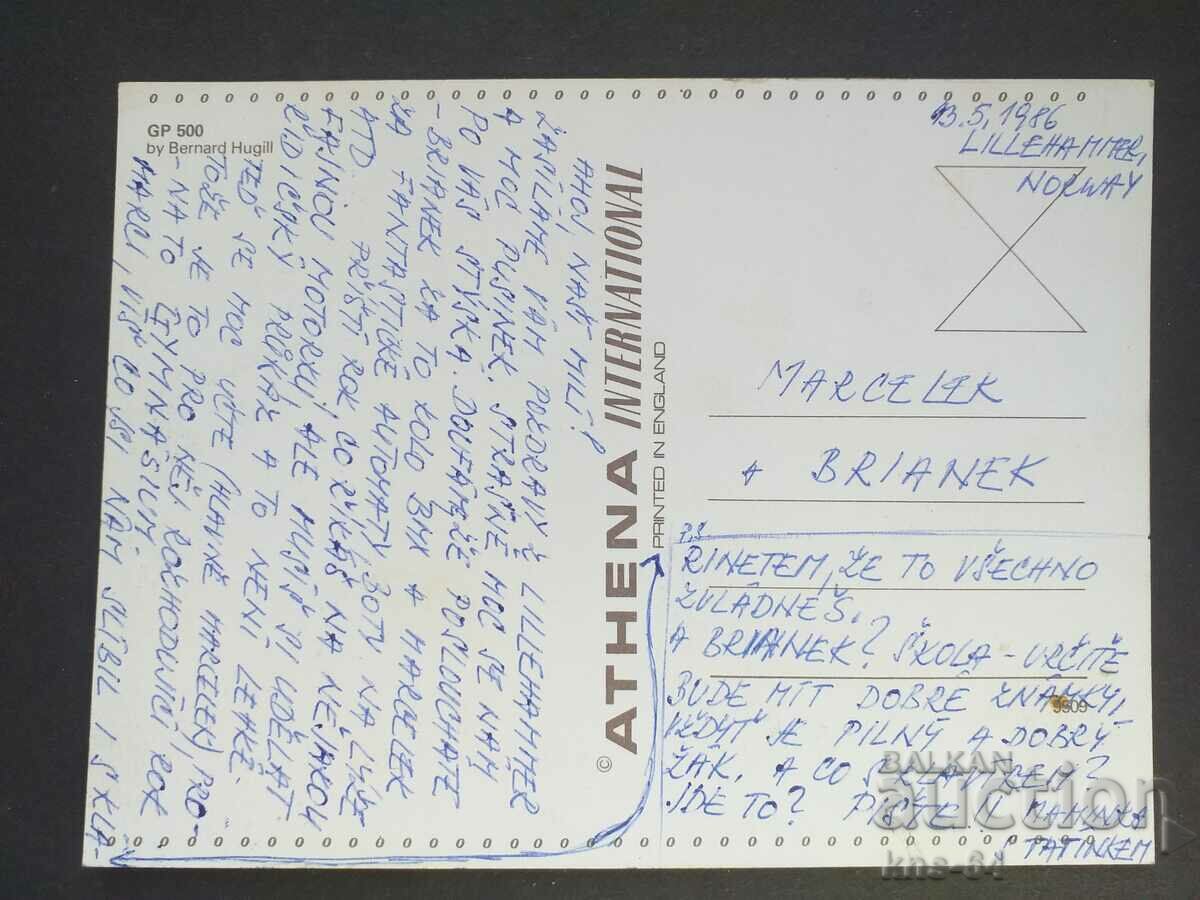 GP 500
by Bernard Hugill
13.5.1986
LILLEHAMMER,
NORWAY
AHOJ NAŠI MILÍ!
ZASÍLÁME VÁM POZDRAVY Z LILLEHAMMER
A MOC PUSINEK. STRAŠNĚ MOC SE NÁM
PO VÁS STÝSKÁ. DOUFÁM, ŽE POSLOUCHÁTE
- BRIANEK ZA TO KOLO BMX A MARCELEK
ZA FANTASTICKÉ AUTOMATY BOTY NA LYŽE
ATD. PŘÍŠTÍ ROK CO ŘÍKÁŠ NA NĚJAKOU
FAJNOU MOTORKU, ALE MUSÍŠ SI UDĚLAT
ŘIDIČSKÝ PRŮKAZ A TO NENÍ LEHKÉ.
TEĎ SE MOC UČTE (HLAVNĚ MARCELEK), PRO-
TOŽE JE TO PRO NĚJ ROZHODUJÍCÍ ROK
- NA TO GYMNASIUM
MARCI VÍŠ CO JSI NÁM SLÍBIL I S KLA-
© ATHENA INTERNATIONAL
PRINTED IN ENGLAND
MARCELEK
A BRIANEK
P.S.
RINETEM, ŽE TO VŠECHNO
ZVLÁDNEŠ.
A BRIANEK? ŠKOLA - URČITĚ
BUDE MÍT DOBRÉ ZNÁMKY,
VŽDYŤ JE PILNÝ A DOBRÝ
ŽÁK. A CO S KLAVÍREM?
JDE TO? PIŠTE! MAMINKA
S TATÍNKEM
9609
BALKAN
auction
kns-64